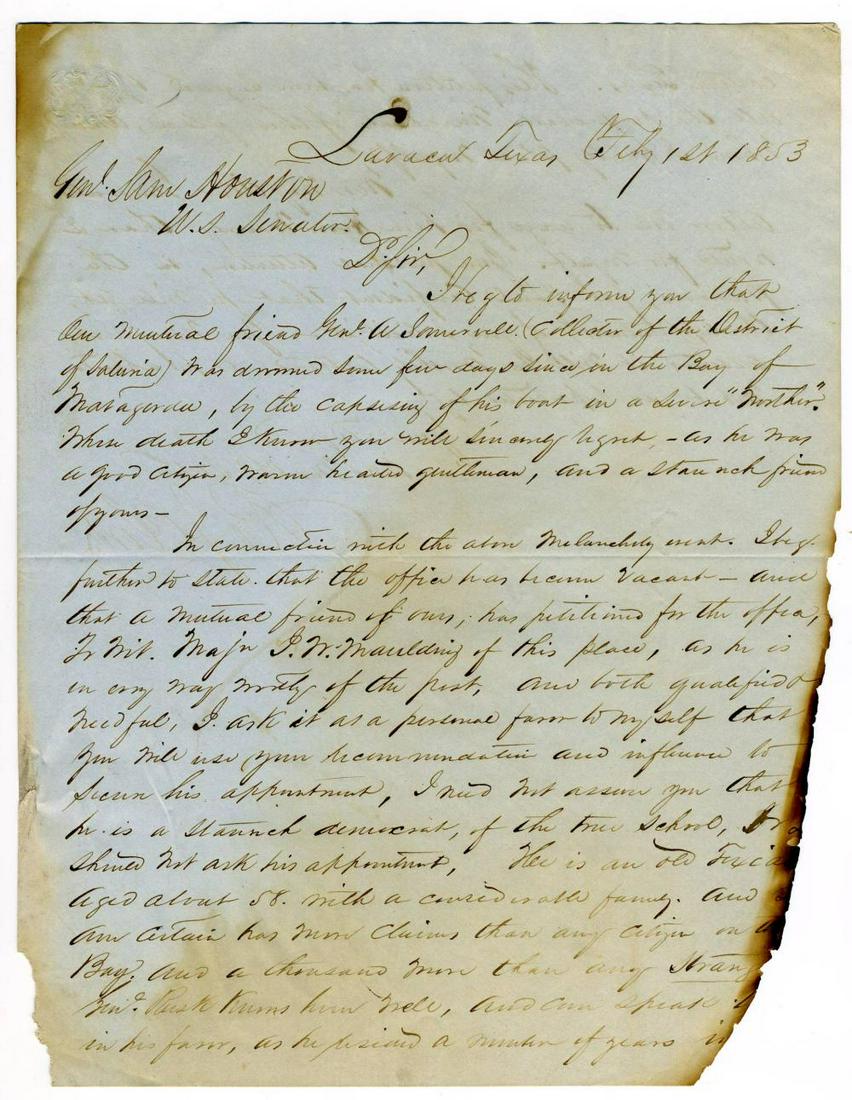 Lavaca Texas Feby 1st 1853
Genl. Sam Houston
U.S. Senator.
Dr Sir,
I beg to inform you that
our mutual friend Genl. A Somervell. (Collector of the District
of Saluria) was drowned some few days since in the Bay of
Matagorda, by the capsizing of his boat in a severe "Norther".
Whose death I know you will sincerely regret, - as he was
a good citizen, warm hearted gentleman, and a staunch friend
of yours -
In connection with the above melancholy event. I beg
further to state. that the office has become vacant - and
that a mutual friend of ours, has petitioned for the office,
To Wit. Majr J. W. Maulding of this place, as he is
in every way worthy of the post, and both qualified &
needful, I ask it as a personal favor to myself that
you will use your recommendation and influence to
secure his appointment, I need not assure you that
he is a staunch democrat, of the true School, or
should not ask his appointment, He is an old Texia
aged about 58. with a considerable family. And
am certain has more claims than any citizen on
Bay, and a thousand more than any Strang
Genl. Rusk knows him well, and can speak
in his favor, as he resided a number of years in